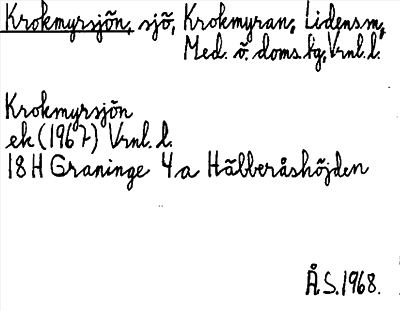 Krokmyrsjön, sjö, Krokmyran, Lidens sn,
Med. ö. doms.sg, Vrnl. l.
Krokmyrsjön
ek (1967) Vrnl. l.
18 H Graninge 4 a Hälberåshöjden
Å S. 1968.